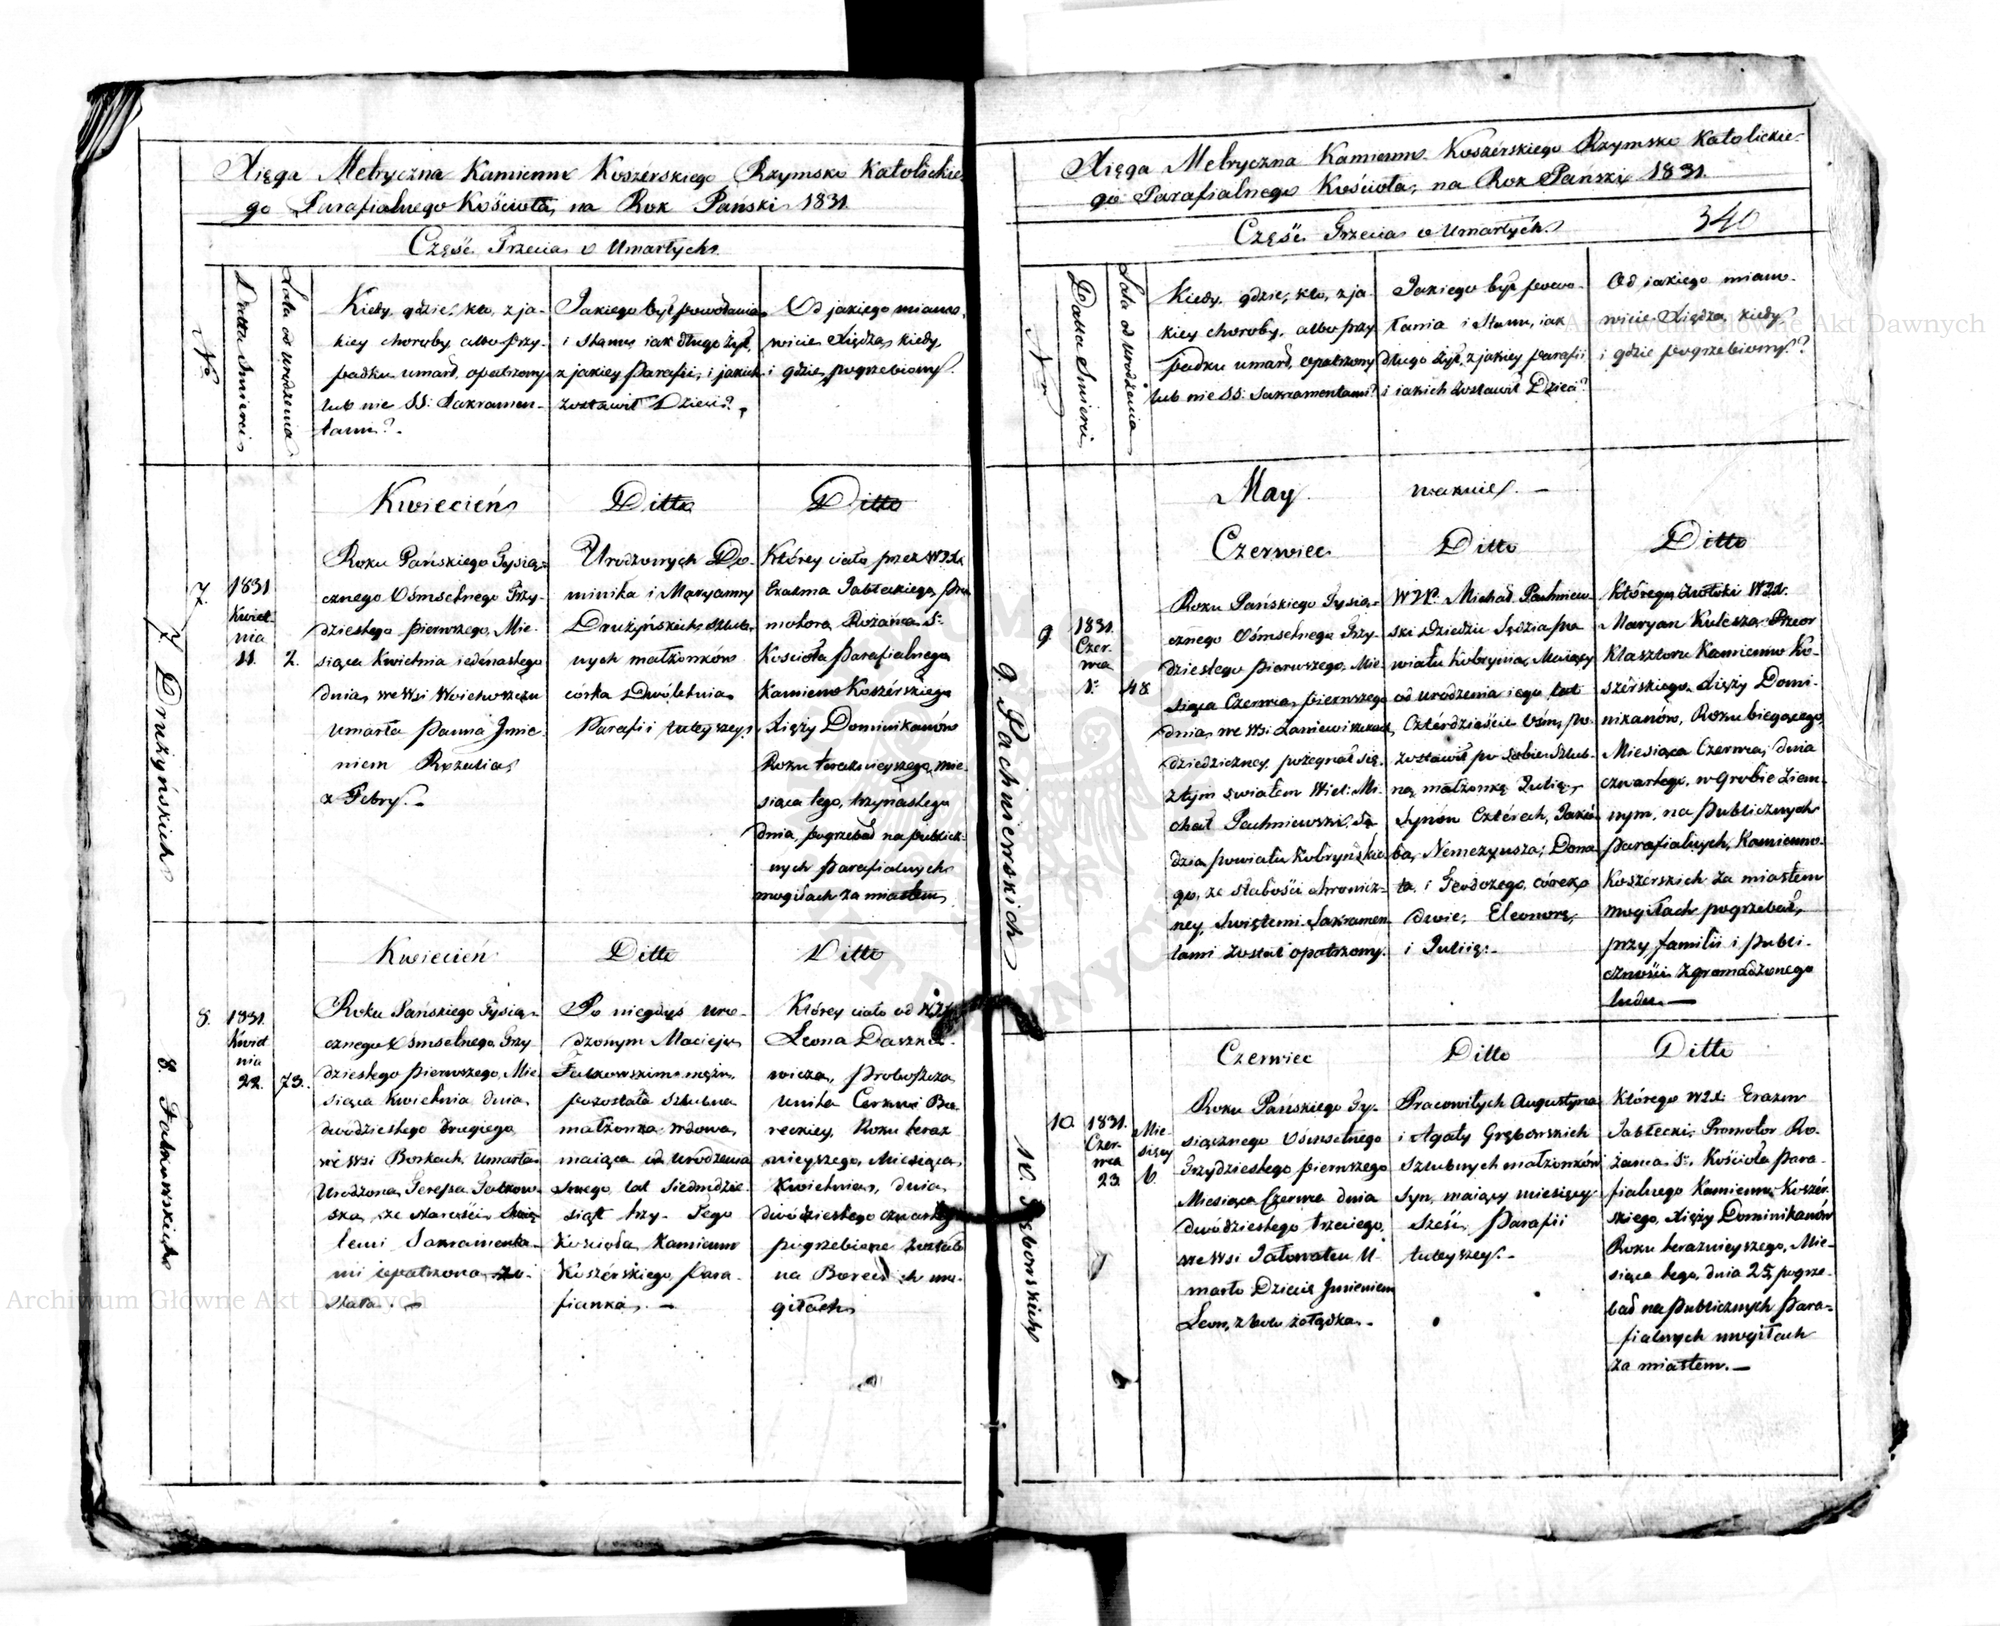 Xięga Metryczna Kamienno Koszérskiego Rzymsko Katolickie
go Parafialnego Kościoła, na Rok Pański 1831
Część Trzecia o Umarłych
No
Datta Smierci
Lata od urodzenia
Kiedy, gdzie, kto, z ja-
kiey choroby, albo przy-
padku umarł, opatrzony
lub nie SS: Sakramen-
tami?
Jakiego był powołania
i stanu, iak długo żył,
z jakiey Parafii, i jakich
zostawił Dzieci?
Od jakiego miano-
wicie Xiędza, kiedy
i gdzie pogrzebiony.
Kwiecień
Ditto
Ditto
7. Drużyńskich
7.
1831
Kwiet-
nia
11.
2.
Roku Pańskiego Tysią-
cznego Ośmsetnego Trzy-
dziestego pierwszego, Mie-
siąca Kwietnia iedenastego
dnia, we Wsi
umarła Panna Jmie
niem Rozalia,
z Febry.
Urodzonych Do-
minika i Maryanny
Drużyńskich szlub-
nych małżonków
córka Dwóletnia
Parafii tuteyszey.
Którey ciało przez WJX
Erazma Jabłeckiego, Pro
motora Rożańca S:
Kościoła Parafialnego
Kamieno Koszérskiego
Xięży Dominikanów
Roku teraznieyszego, mie-
siąca tego, trzynastego
dnia, pogrzebał na publicz-
nych Parafialnych
mogiłach za miastem
Kwiecień
Ditto
Ditto
8. Falkowskich
8.
1831.
Kwiet
nia
22.
73.
Roku Pańskiego Tysią-
cznego Ośmsetnego, Trzy-
dziestego pierwszego, Mie
siąca Kwietnia dnia
dwódziestego drugiego
we Wsi Borkach, umarła
Urodzona Teressa Falkow-
ska, ze starości, Świę
temi Sakramenta-
mi opatrzona zo-
stała.
Po niegdyś uro-
dzonym Macieju
Falkowskim mężu,
pozostała szlubna
małżonka wdowa,
maiąca od urodzenia
swego lat Siedmdzie-
siąt trzy. Tego
Kościoła Kamienno
Koszérskiego Para-
fianka.
Którey ciało od WJX
Leona
wicza, Proboszcza
Unita Cerkwi Bo-
reckiey, Roku teraz
nieyszego, Miesiąca
Kwietnia, dnia
dwódziestego czwartego
pogrzebione zostało
na Boreckich mo-
giłach
Xięga Metryczna Kamienno Koszérskiego Rzymsko Katolickie-
go Parafialnego Kościoła, na Rok Pański 1831.
Część Trzecia o Umarłych
340
Nr
Datta Smierci
Lata od urodzenia
Kiedy, gdzie, kto, z ja-
kiey choroby, albo przy
padku umarł, opatrzony
lub nie SS: Sakramentami?
Jakiego był powo-
łania i stanu, iak
długo żył, z jakiey parafii
i iakich zostawił Dzieci?
Od iakiego miano-
wicie Xiędza, kiedy
i gdzie pogrzebiony?
May
wakuie.
Czerwiec
Ditto
Ditto
9. Pachniewskich
9.
1831.
Czer-
wca
1:
48
Roku Pańskiego Tysią-
cznego Ośmsetnego Trzy-
dziestego pierwszego, Mie-
siąca Czerwca, pierwszego
dnia, we Wsi
dziedziczney, pożegnał się
z tym światem Wiel: Mi-
chał Pachniewski, Sę
dzia powiatu Kobryńskie
go, ze słabości chronicz-
ney, Swiętemi Sakramen
tami został opatrzony.
WJP. Michał Pachniew-
ski Dziedzic Sędzia Po
wiatu Kobrynia, Maiący
od urodzenia iego lat
Czterdzieście Ośm, po-
zostawił po sobie szlub-
ną małżonkę Julię,
Synów Czterech, Jakó-
ba, Nemezyusza, Dona
ta, i Teodozego, córek
dwie, Eleonorę,
i Julię.
Którego zwłoki WJX.
Maryan Kulesza, Przeor
Klasztoru Kamienno Ko-
szérskiego, Xięży Domi-
nikanów, Roku bieżącego
Miesiąca Czerwca, dnia
czwartego, w grobie ziem-
nym, na Publicznych
Parafialnych, Kamienno-
Koszerskich za miastem
mogiłach pogrzebał,
przy familii i publi-
czności zgromadzonego
ludu.
Czerwiec
Ditto
Ditto
10. Grębowskich
10.
1831.
Czer-
wca
23.
Mie
sięcy
6.
Roku Pańskiego Ty-
siącznego Ośmsetnego
Trzydziestego pierwszego
Miesiąca Czerwca dnia
dwódziestego trzeciego,
we Wsi U-
marło Dziecię Jmieniem
Leon, z bolu żołądka.
Pracowitych Augustyna
i Agaty Grębowskich
szlubnych małżonków
Syn, maiący miesięcy
sześć, Parafii
tuteyszey.
Którego WJX. Erazm
Jabłecki, Promotor Ro-
żańca S:, Kościoła Para-
fialnego Kamienno Koszér-
skiego, Xięży Dominikanów
Roku teraznieyszego, Mie-
siąca tego, dnia 25, pogrze-
bał na Publicznych Para-
fialnych mogiłach
za miastem.
Archiwum Główne Akt Dawnych
Archiwum Główne Akt Dawnych